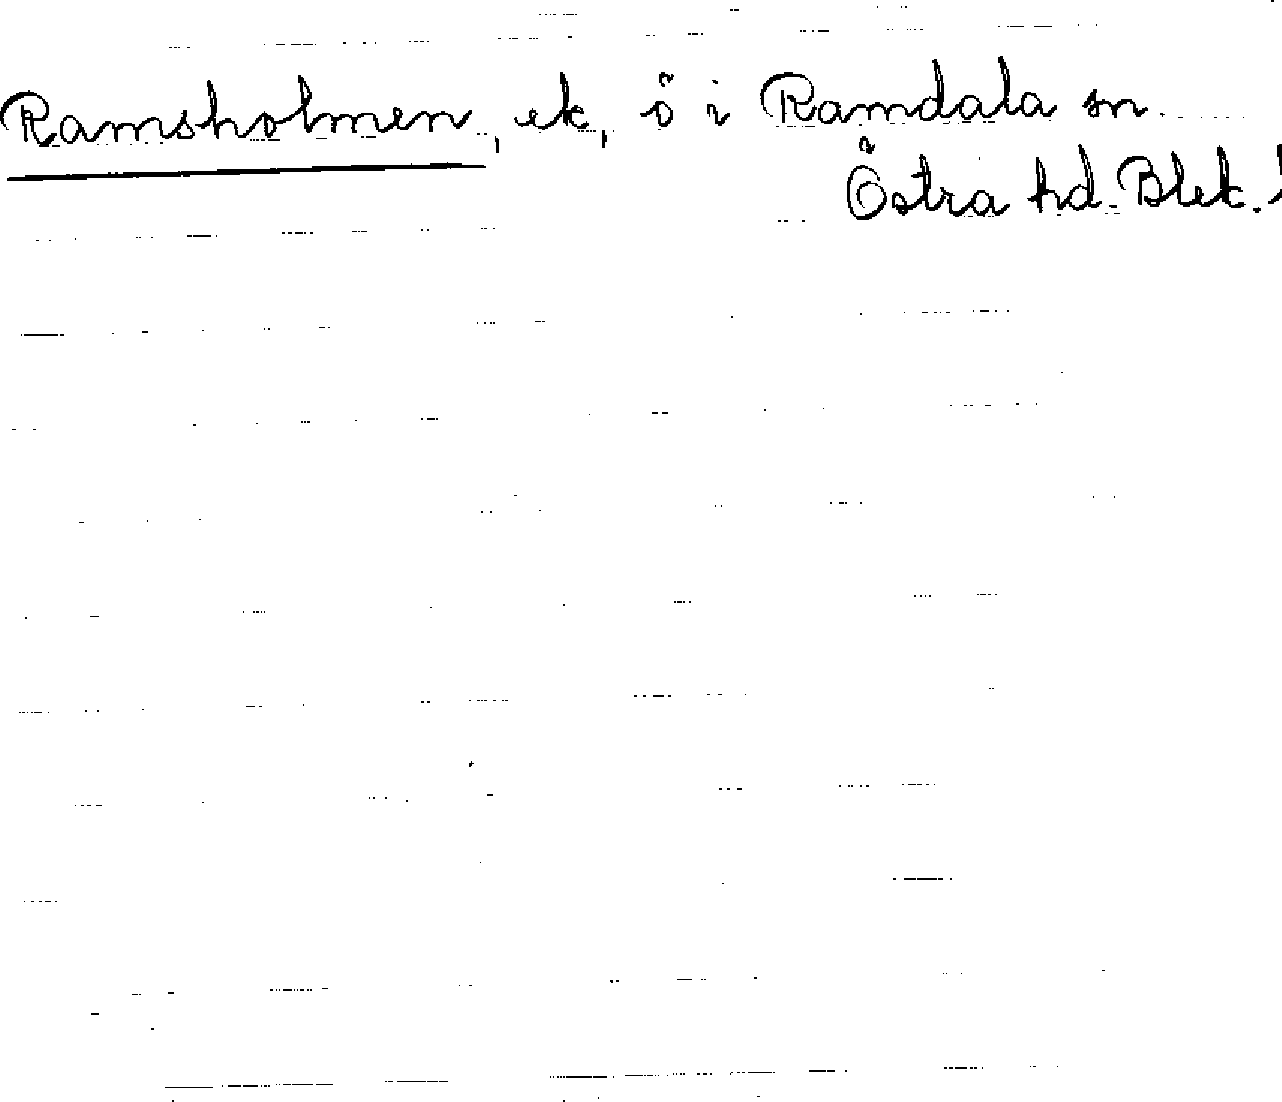 Ramsholmen, ek, ö i Ramdala sn.
Östra hd. Blek.